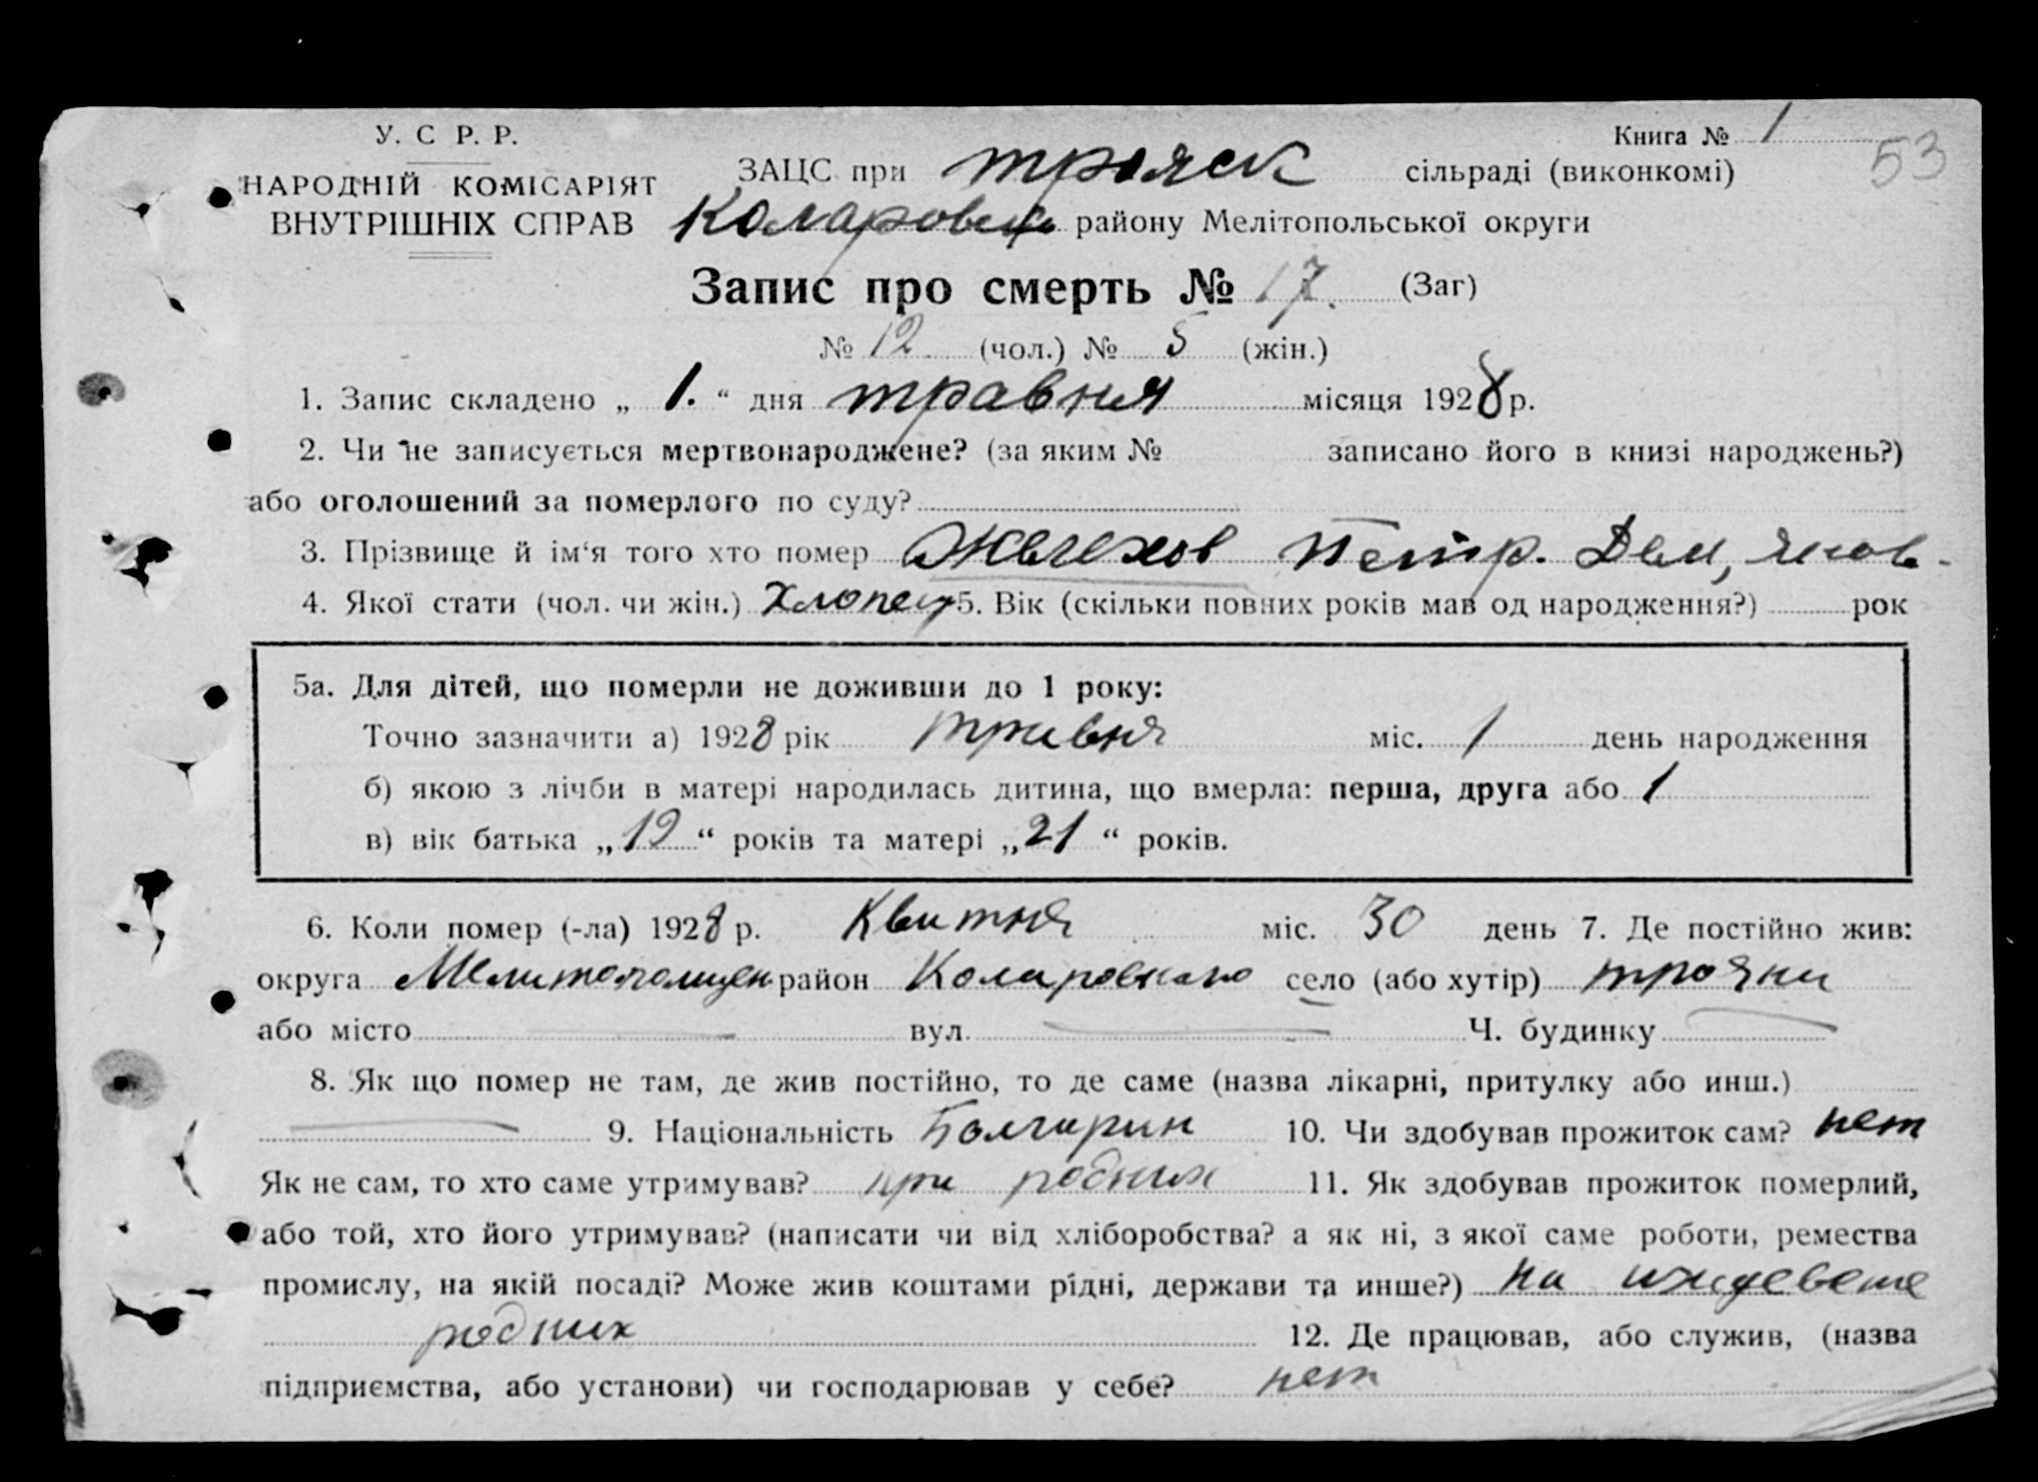 У. С Р. Р.
НАРОДНІЙ КОМІСАРІЯТ
ВНУТРІШНІХ СПРАВ
Книга № 1
53
ЗАЦС при трояск сільраді (виконкомі)
Коларовск району Мелітопольської округи
Запис про смерть № 17. (Заг)
№ 12 (чол.) № 5 (жін.)
1. Запис складено „ 1. “ дня травня місяця 1928 р.
2. Чи не записується мертвонароджене? (за яким № записано його в книзі народжень?)
або оголошений за померлого по суду?
3. Прізвище й ім‘я того хто помер Желехов Петр. Дем,
4. Якої стати (чол. чи жін.) Хлопец 5. Вік (скільки повних років мав од народження?) рок
5а. Для дітей, що померли не доживши до 1 року:
Точно зазначити а) 1928 рік травня міс. 1 день народження
б) якою з лічби в матері народилась дитина, що вмерла: перша, друга або 1
в) вік батька „19“ років та матері „21“ років.
6. Коли помер (-ла) 1928 р. Квитня міс. 30 день 7. Де постійно жив:
округа район Коларовского село (або хутір) трояни
або місто вул. Ч. будинку
8. Як що помер не там, де жив постійно, то де саме (назва лікарні, притулку або инш.)
9. Національність Болгарин 10. Чи здобував прожиток сам? нет
Як не сам, то хто саме утримував? при родных 11. Як здобував прожиток померлий,
або той, хто його утримував? (написати чи від хліборобства? а як ні, з якої саме роботи, ремества
промислу, на якій посаді? Може жив коштами рідні, держави та инше?) на иждевене
родных 12. Де працював, або служив, (назва
підприємства, або установи) чи господарював у себе? нет